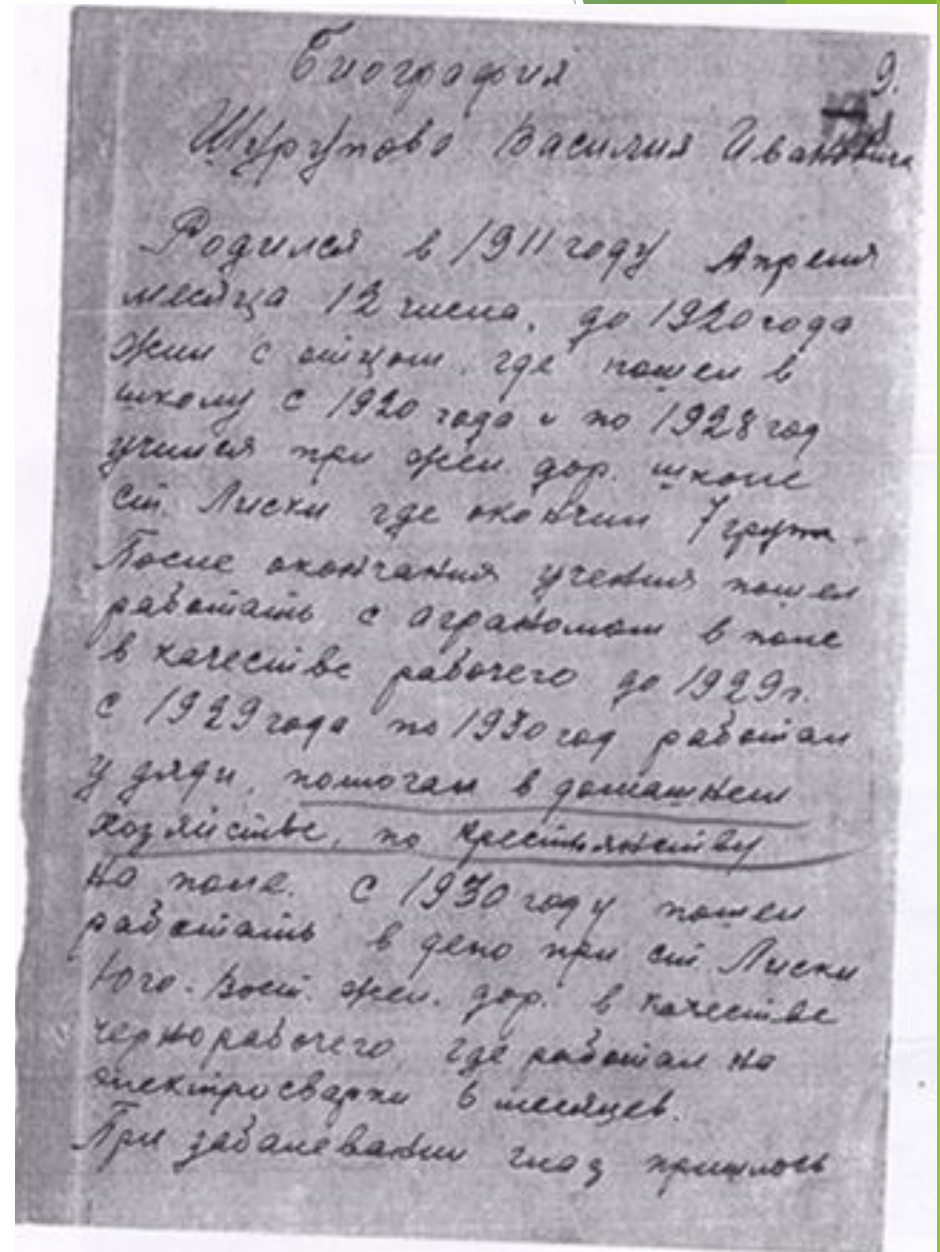 Биография
9.
Шурупова Василия Ивановича
Родился в 1911 году Апреля
месяца 12 числа, до 1920 года
жил с отцом, где пошел в
школу с 1920 года и по 1928 год
учился при жел. дор. школе
ст. Лиски где окончил 7 групп.
После окончания учения пошел
работать с аграномом в поле
в качестве рабочего до 1929 г.
с 1929 года по 1930 год работал
у дяди, помогал в домашнем
хозяйстве, по крестьянству
на поле. С 1930 году пошел
работать в депо при ст. Лиски
Юго-Вост. жел. дор. в качестве
чернорабочего, где работал на
электросварки 6 месяцев.
При заболевании глаз пришлось